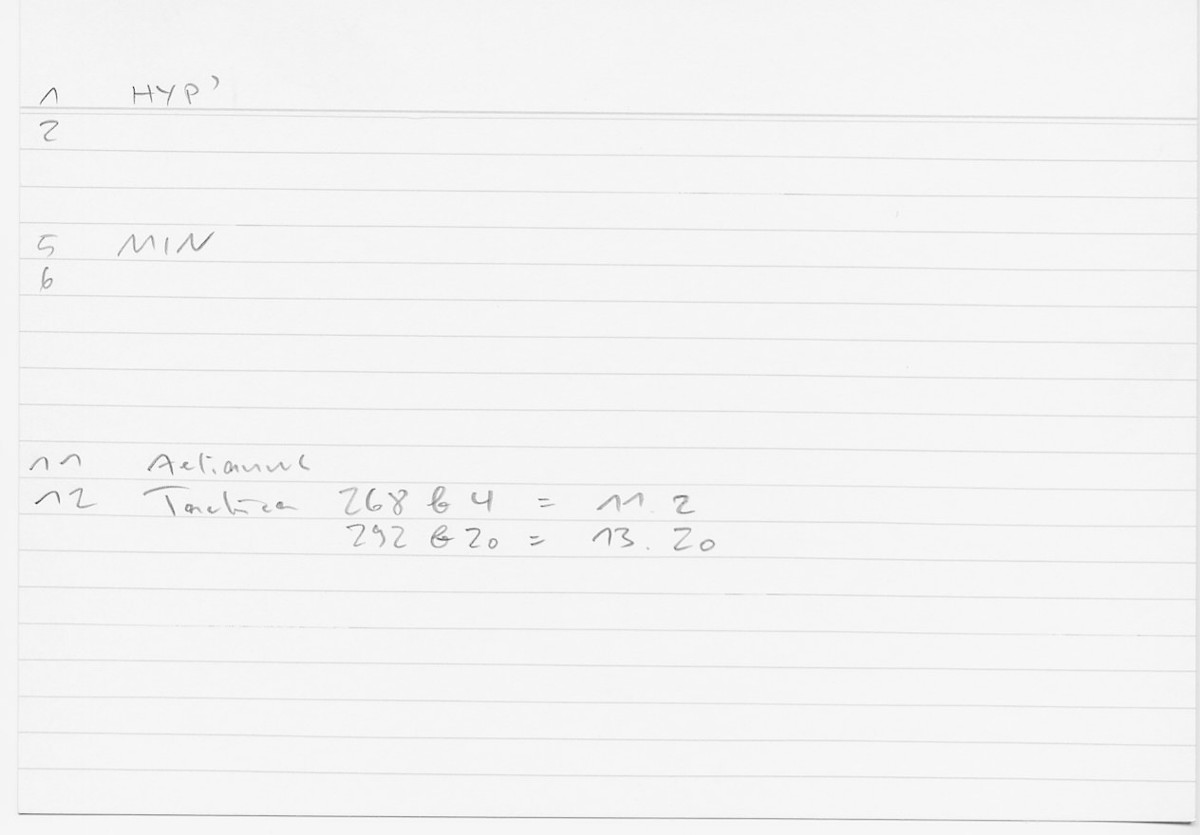 1 HYP'
2
5 MIN
6
11 Aelianus
12 Tactica 268 b 4 = 11. 2
292 b 20 = 13. 20